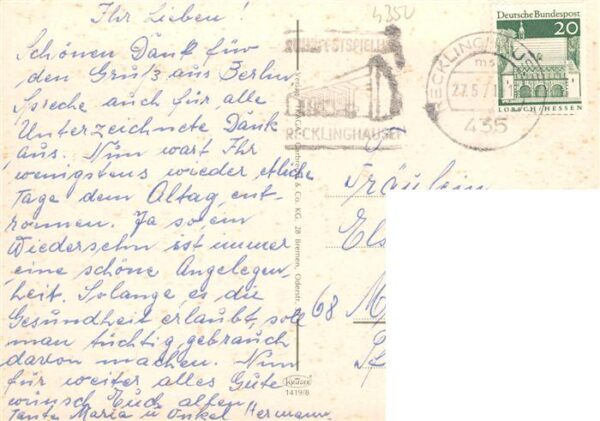 Ihr Lieben!
Schönen Dank für
den Gruß aus Berlin
Spreche auch für alle
Unterzeichnete Dank
aus. Nun wart Ihr
wenigstens wieder etliche
Tage dem Altag, ent-
ronnen. Ja so ein
Wiedersehn ist immer
eine schöne Angelegen
heit. Solange es die
Gesundheit erlaubt, soll
man tüchtig gebrauch
davon machen. Nun
für weiter alles Gute
wünsch Euch allen
Tante Maria u Onkel Hermann
4350
RECKLINGHAUSEN
Deutsche Bundespost
20
LORSCH/HESSEN
RECKLINGHAUSEN
27.5.7
435
& Co. KG. 28 Bremen, Oderstr.
Fräulein
Els
68 M
KRÜGER
1419/8